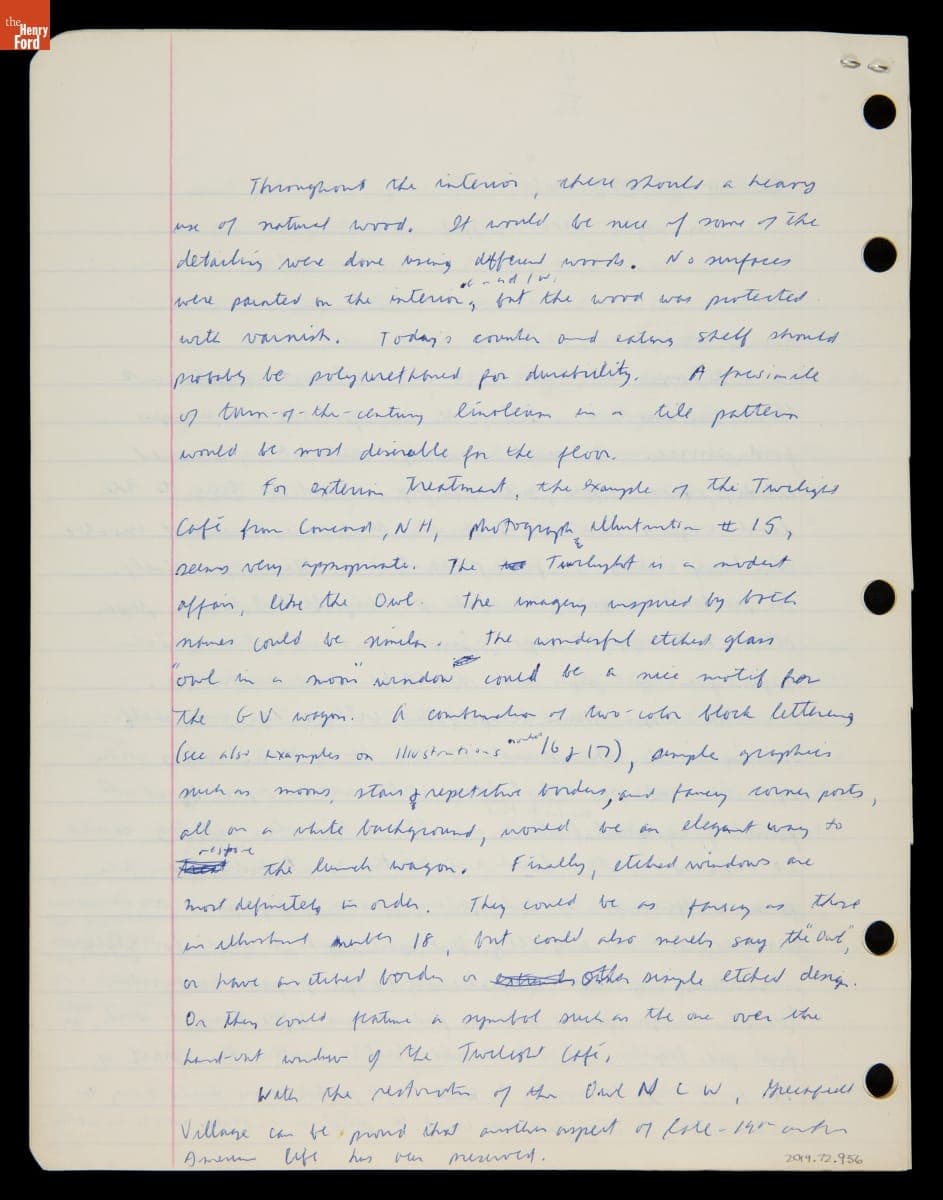 the Henry Ford
Throughout the interior, there should a heavy
use of natural wood. It would be nice if some of the
detailing were done using different woods. No surfaces
were painted on the interior, but the wood was protected
with varnish. Today's counter and eating shelf should
probably be polyurethaned for durability. A facsimile
of turn-of-the-century linoleum in a tile pattern
would be most desirable for the floor.
For exterior treatment, the example of the Twilight
Café from Concord, NH, photograph illustration # 15,
seems very appropriate. The Twilight is a modest
affair, like the Owl. The imagery inspired by both
names could be similar. The wonderful etched glass
"owl in a moon" window could be a nice motif for
the GV wagon. A combination of two-color block lettering
(see also examples on illustrations number 16 & 17), simple graphics
such as moons, stars & repetitive borders, and fancy corner posts,
all on a white background, would be an elegant way to
restore the lunch wagon. Finally, etched windows are
most definitely in order. They could be as fancy as those
in illustrat number 18, but could also merely say the "Owl",
or have an etched border or other simple etched design.
Or they could feature a symbol such as the one over the
hand-out window of the Twilight Café.
With the restoration of the Owl N L W, Greenfield
Village can be proud that another aspect of late-19th century
American life has been preserved.
2019.72.956